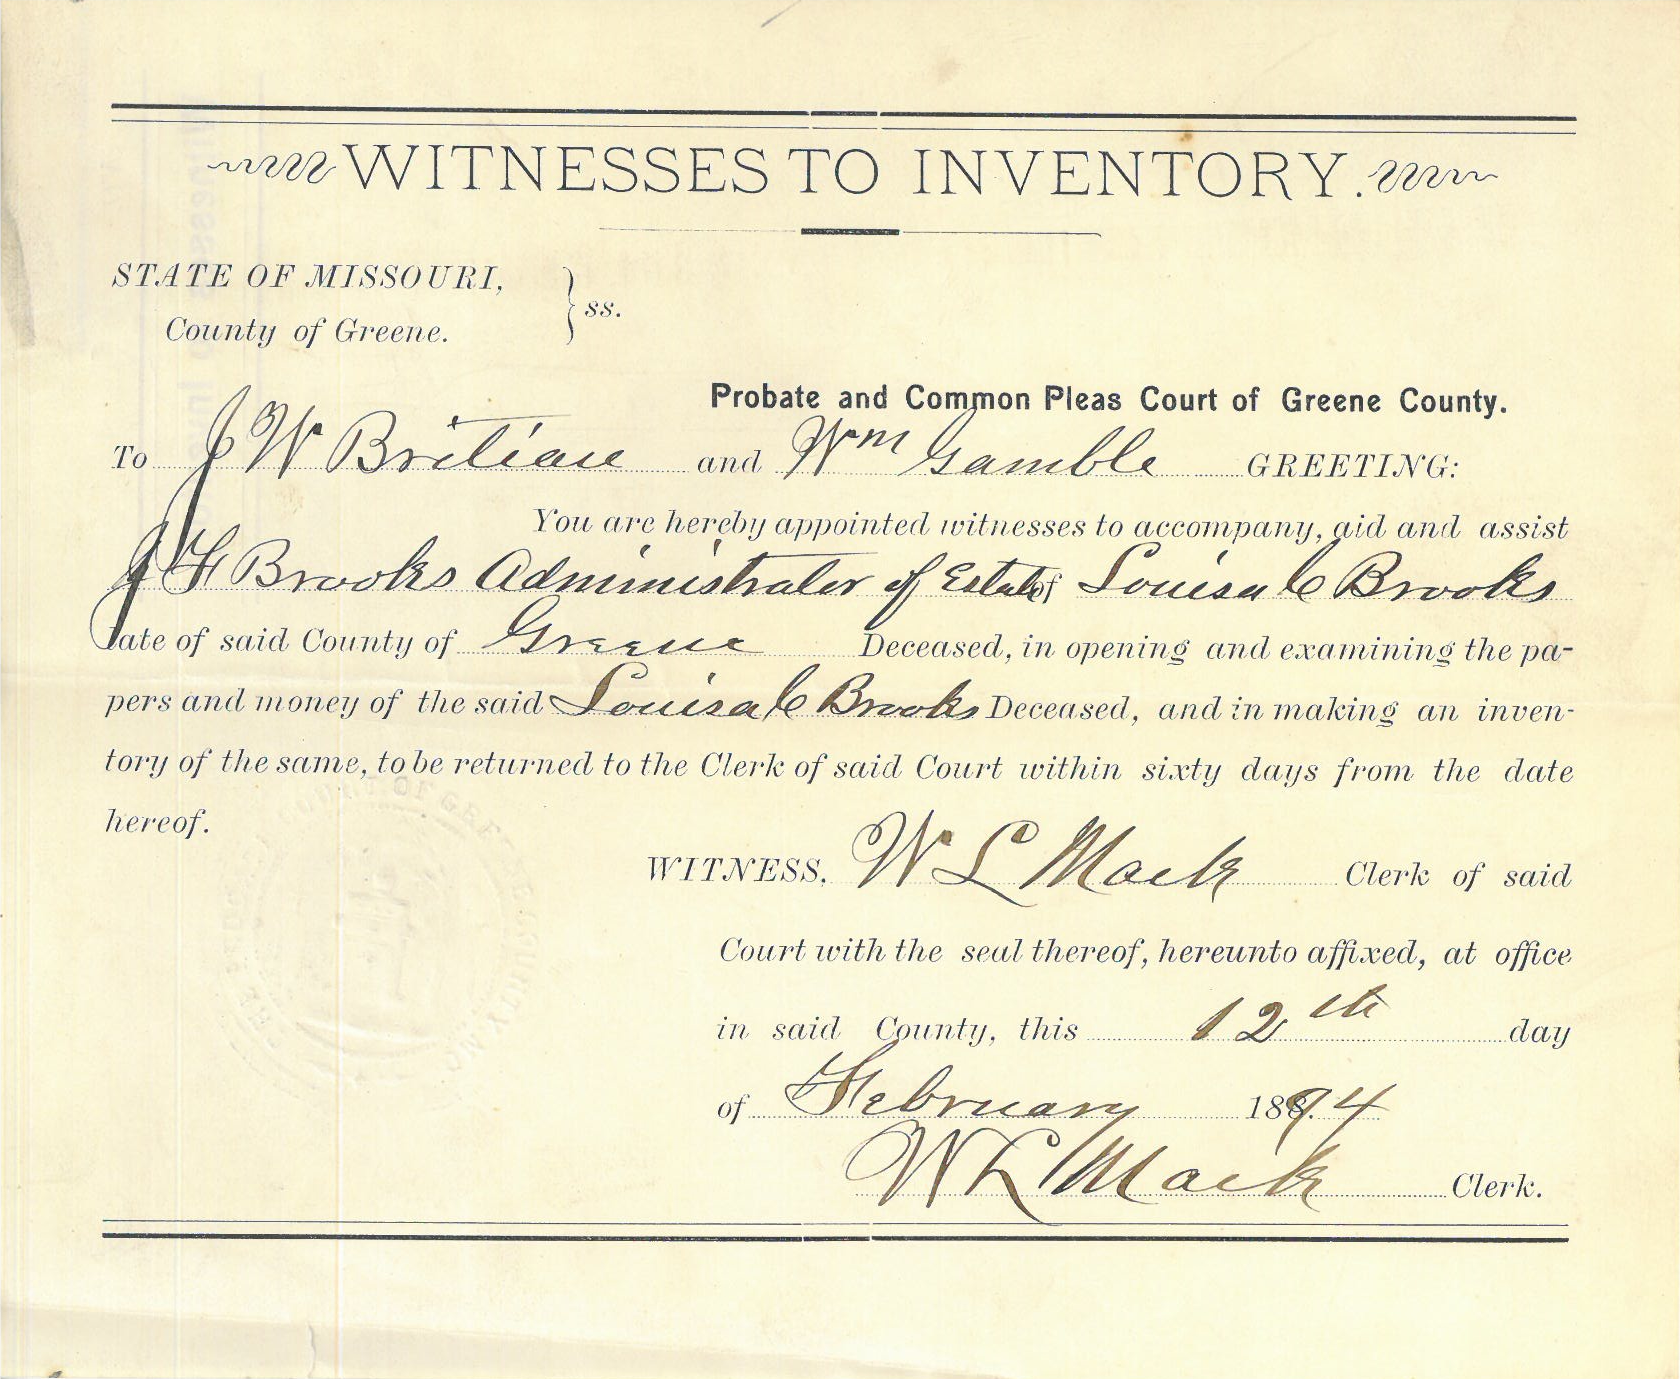 WITNESSES TO INVENTORY.
STATE OF MISSOURI,
County of Greene.
} ss.
Probate and Common Pleas Court of Greene County.
To J W Britian and Wm Gamble GREETING:
You are hereby appointed witnesses to accompany, aid and assist
J F Brooks Administrator of Estate of Louisa C Brooks
late of said County of Greene Deceased, in opening and examining the pa-
pers and money of the said Louisa C Brooks Deceased, and in making an inven-
tory of the same, to be returned to the Clerk of said Court within sixty days from the date
hereof.
WITNESS, W L Mack Clerk of said
Court with the seal thereof, hereunto affixed, at office
in said County, this 12th day
of February 1894
W L Mack Clerk.